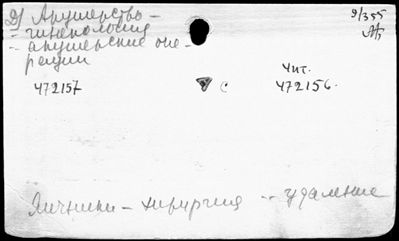 2) Акушерство – 9/355
– гинекология
– акушерские опе-
рации
Чит.
472157 с 472156.
Яичники – хирургия – удаление